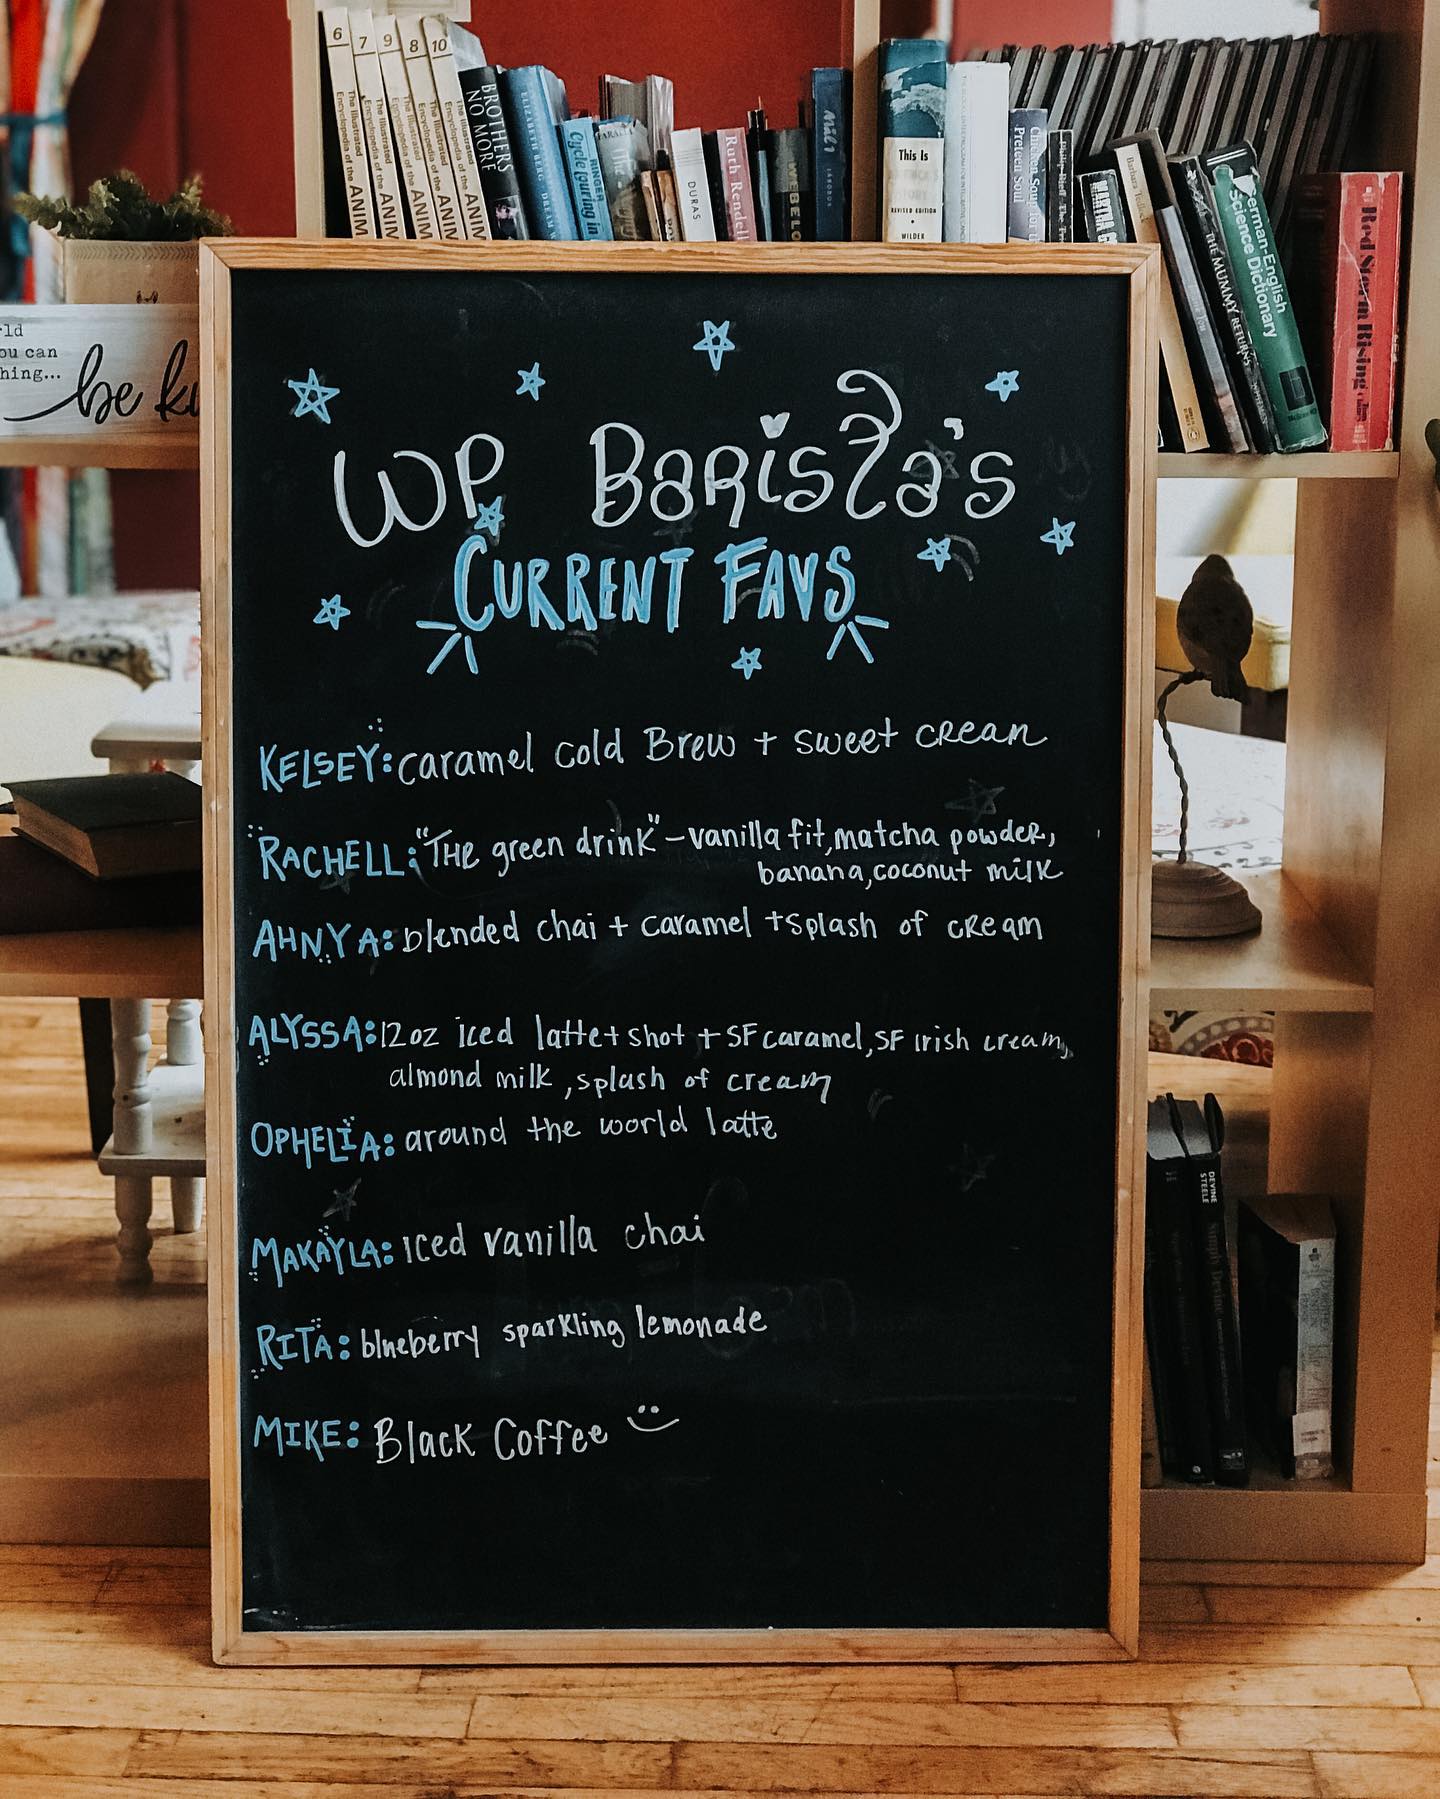 6 7 9 8 10
The Illustrated Encyclopedia of the ANIM
The Illustrated Encyclopedia of the ANIM
The Illustrated Encyclopedia of the ANIM
The Illustrated Encyclopedia of the ANIM
The Illustrated Encyclopedia of the ANIM
BROTHERS NO MORE
ELIZABETH BERG
Cycle touring in
RINGER
DURAS
Ruth Rendell
This Is
REVISED EDITION
WILDER
Chicken Soup for
Preteen Soul
THE MUMMY RETURNS
German-English
Science Dictionary
Red Storm Rising
ou can
hing...
be ki
WP Barista's
CURRENT FAVS
KELSEY: caramel cold Brew + sweet cream
RACHELL: "THE green drink" - vanilla fit, matcha powder,
banana, coconut milk
AHNYA: blended chai + caramel + splash of cream
ALYSSA: 12oz iced latte + shot + SF caramel, SF irish cream,
almond milk, splash of cream
OPHELIA: around the world latte
MAKAYLA: iced vanilla chai
RITA: blueberry sparkling lemonade
MIKE: Black Coffee
DEVINE
STEELE